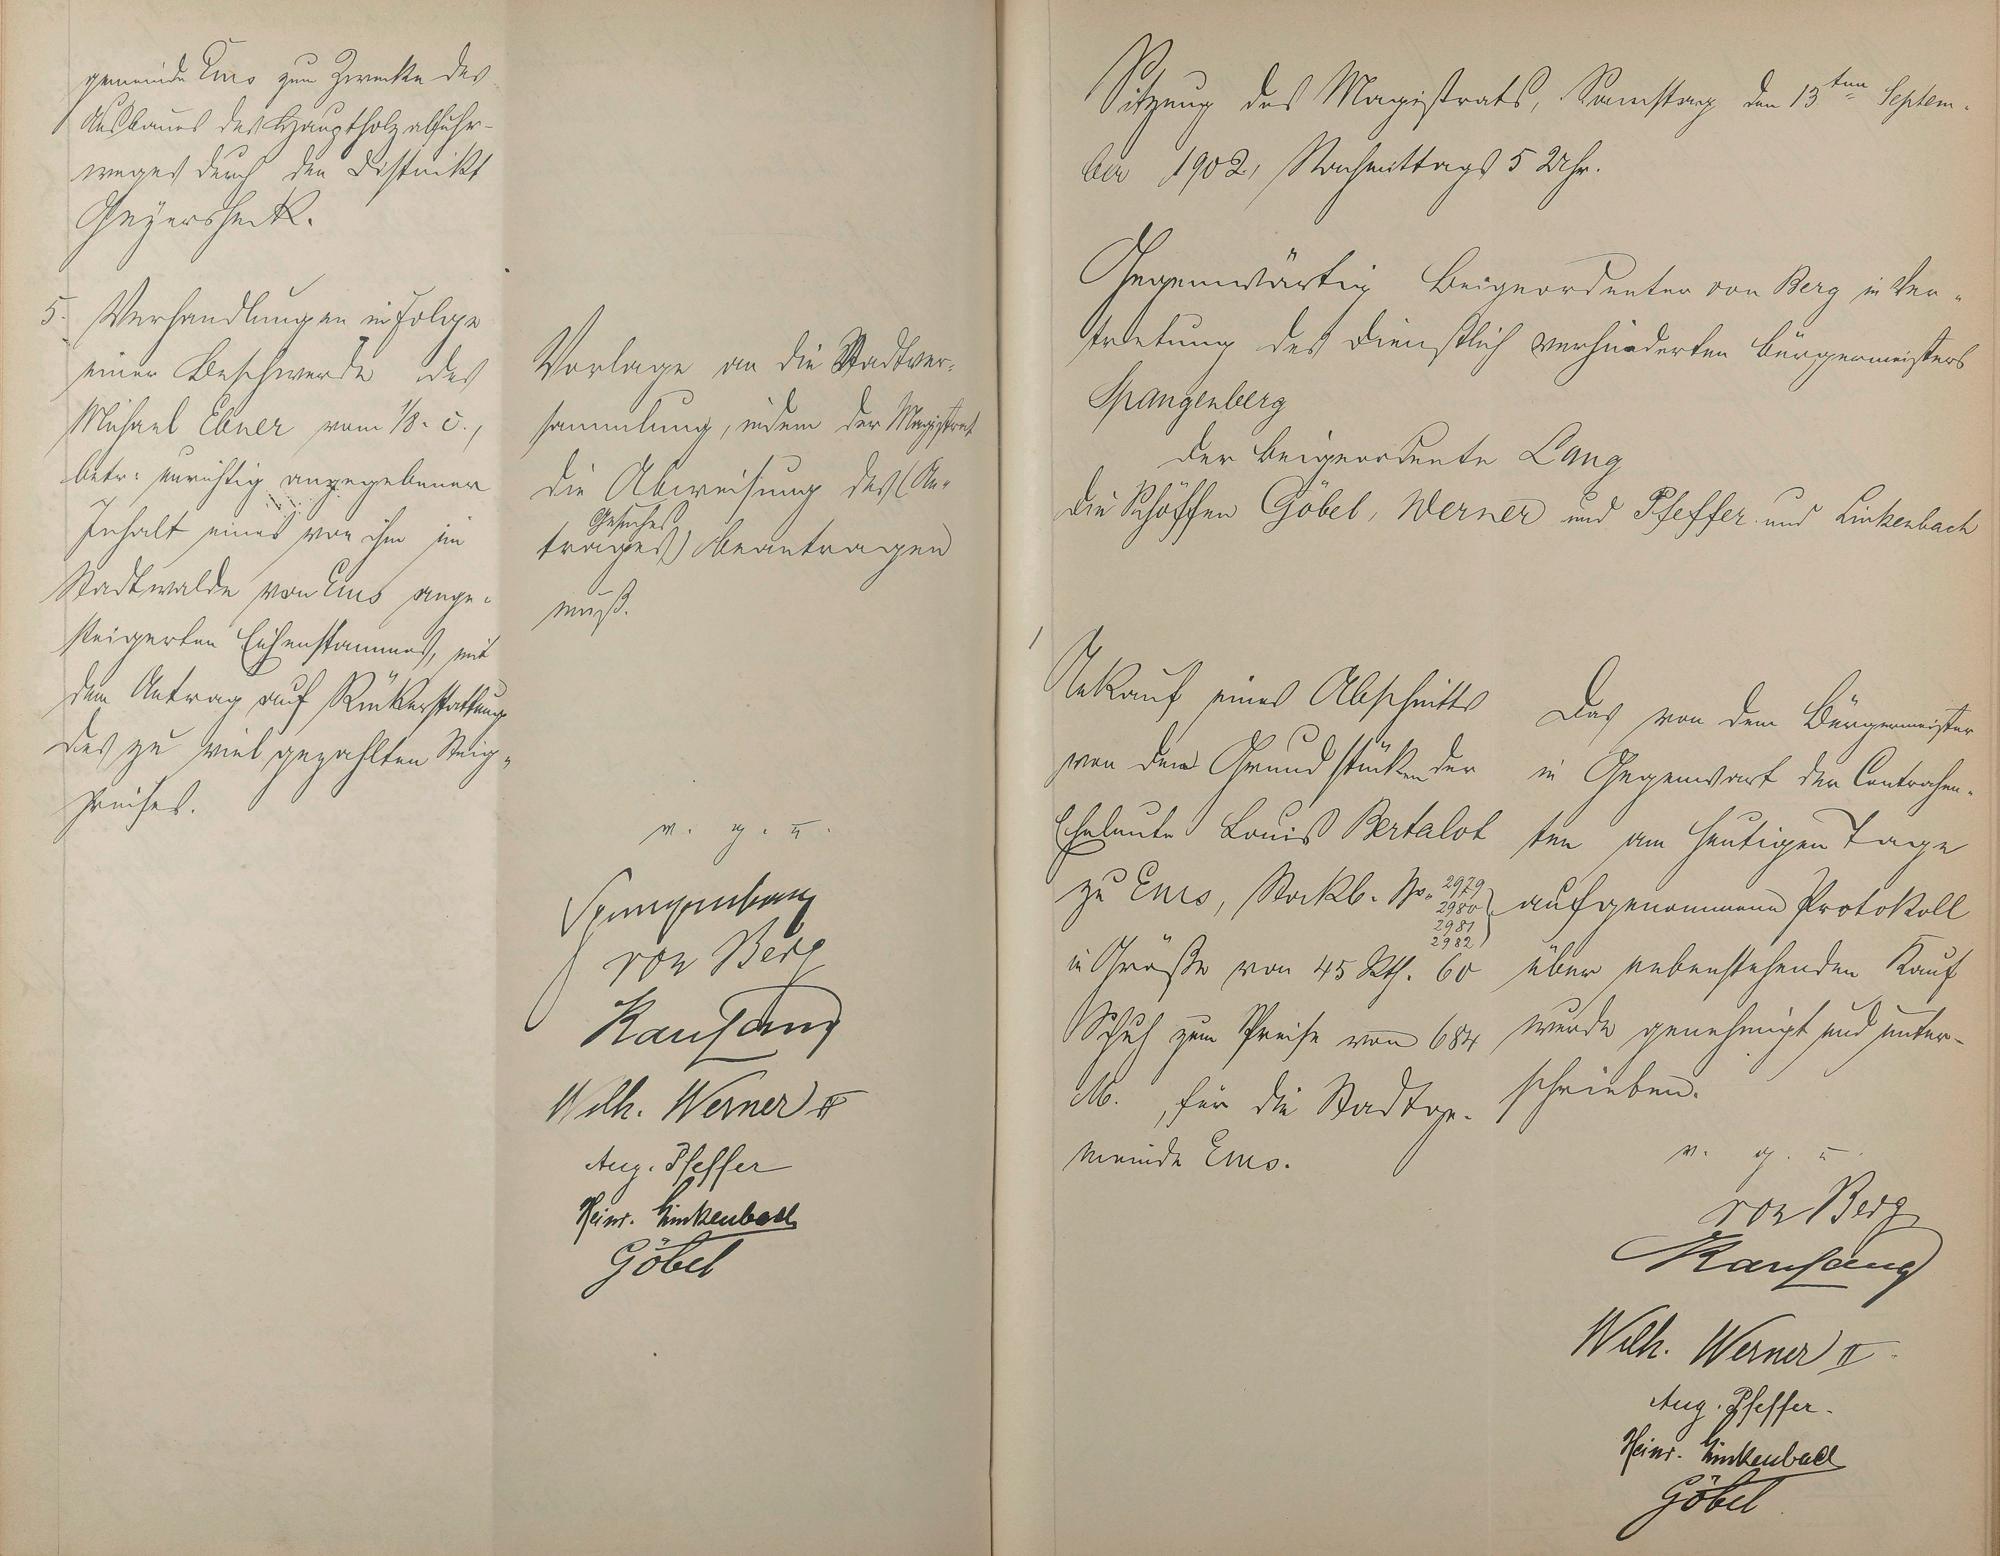 gemeinde Ems zum Zwecke des
Ausbaues des Hauptholzabfuhr-
weges durch den Distrikt
Geyersheck.
5. Verhandlungen in Folge
einer Beschwerde des
Michael Ebner vom 1/8. c.,
betr: unrichtig angegebener
Inhalt eines von ihm im
Stadtwalde von Ems ange-
steigerten Eichenstammes, mit
dem Antrag auf Rückerstattung
des zu viel gezahlten Steig-
preises.
Vorlage an die Stadtver-
sammlung, indem der Magistrat
die Abweisung des (An-
Gesuches
trages) beantragen
muß.
v. g. u.
Spangenberg
von Berg
Wilh. Werner II
Aug. Pfeffer
Heinr. Linkenbach
Göbel
Sitzung des Magistrats, Samstag den 13ten Septem-
ber 1902, Nachmittags 5 Uhr.
Gegenwärtig Beigeordneter von Berg in Ver-
tretung des dienstlich verhinderten Bürgermeisters
Spangenberg
der Beigeordnete Lang
die Schöffen Göbel, Werner und Pfeffer und Linkenbach
1
Ankauf eines Abschnitts
von dem Grundstücken der
Eheleute Louis Bertalot
zu Ems, Stockb. No. 2979
2980
2981
2982
in Größe von 45 Rth. 60
Schuh zum Preise von 684
M. , für die Stadtge-
meinde Ems.
Das von dem Bürgermeister
in Gegenwart der Contrahen-
ten am heutigen Tage
aufgenommene Protokoll
über nebenstehenden Kauf
wurde genehmigt und unter-
schrieben.
v. g. u.
von Berg
Wilh. Werner II
Aug. Pfeffer.
Heinr. Linkenbach
Göbel